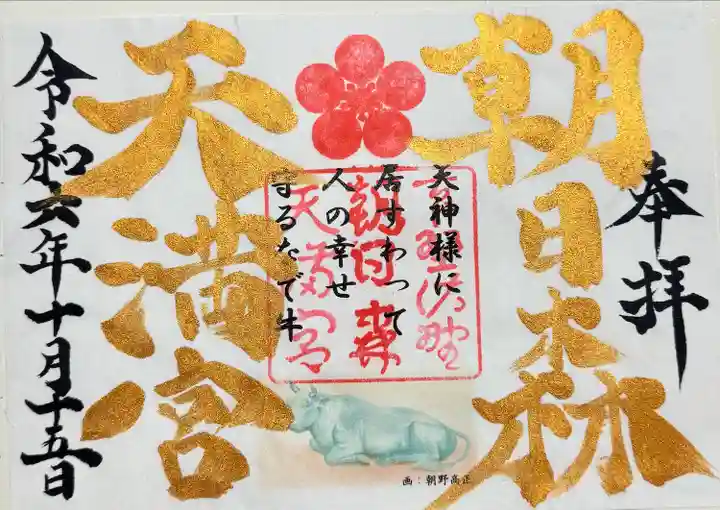 奉拝
朝日森
天満宮
天神様に
居すわって
人の幸せ
守るなで牛
令和六年十月十五日
画：朝野高正